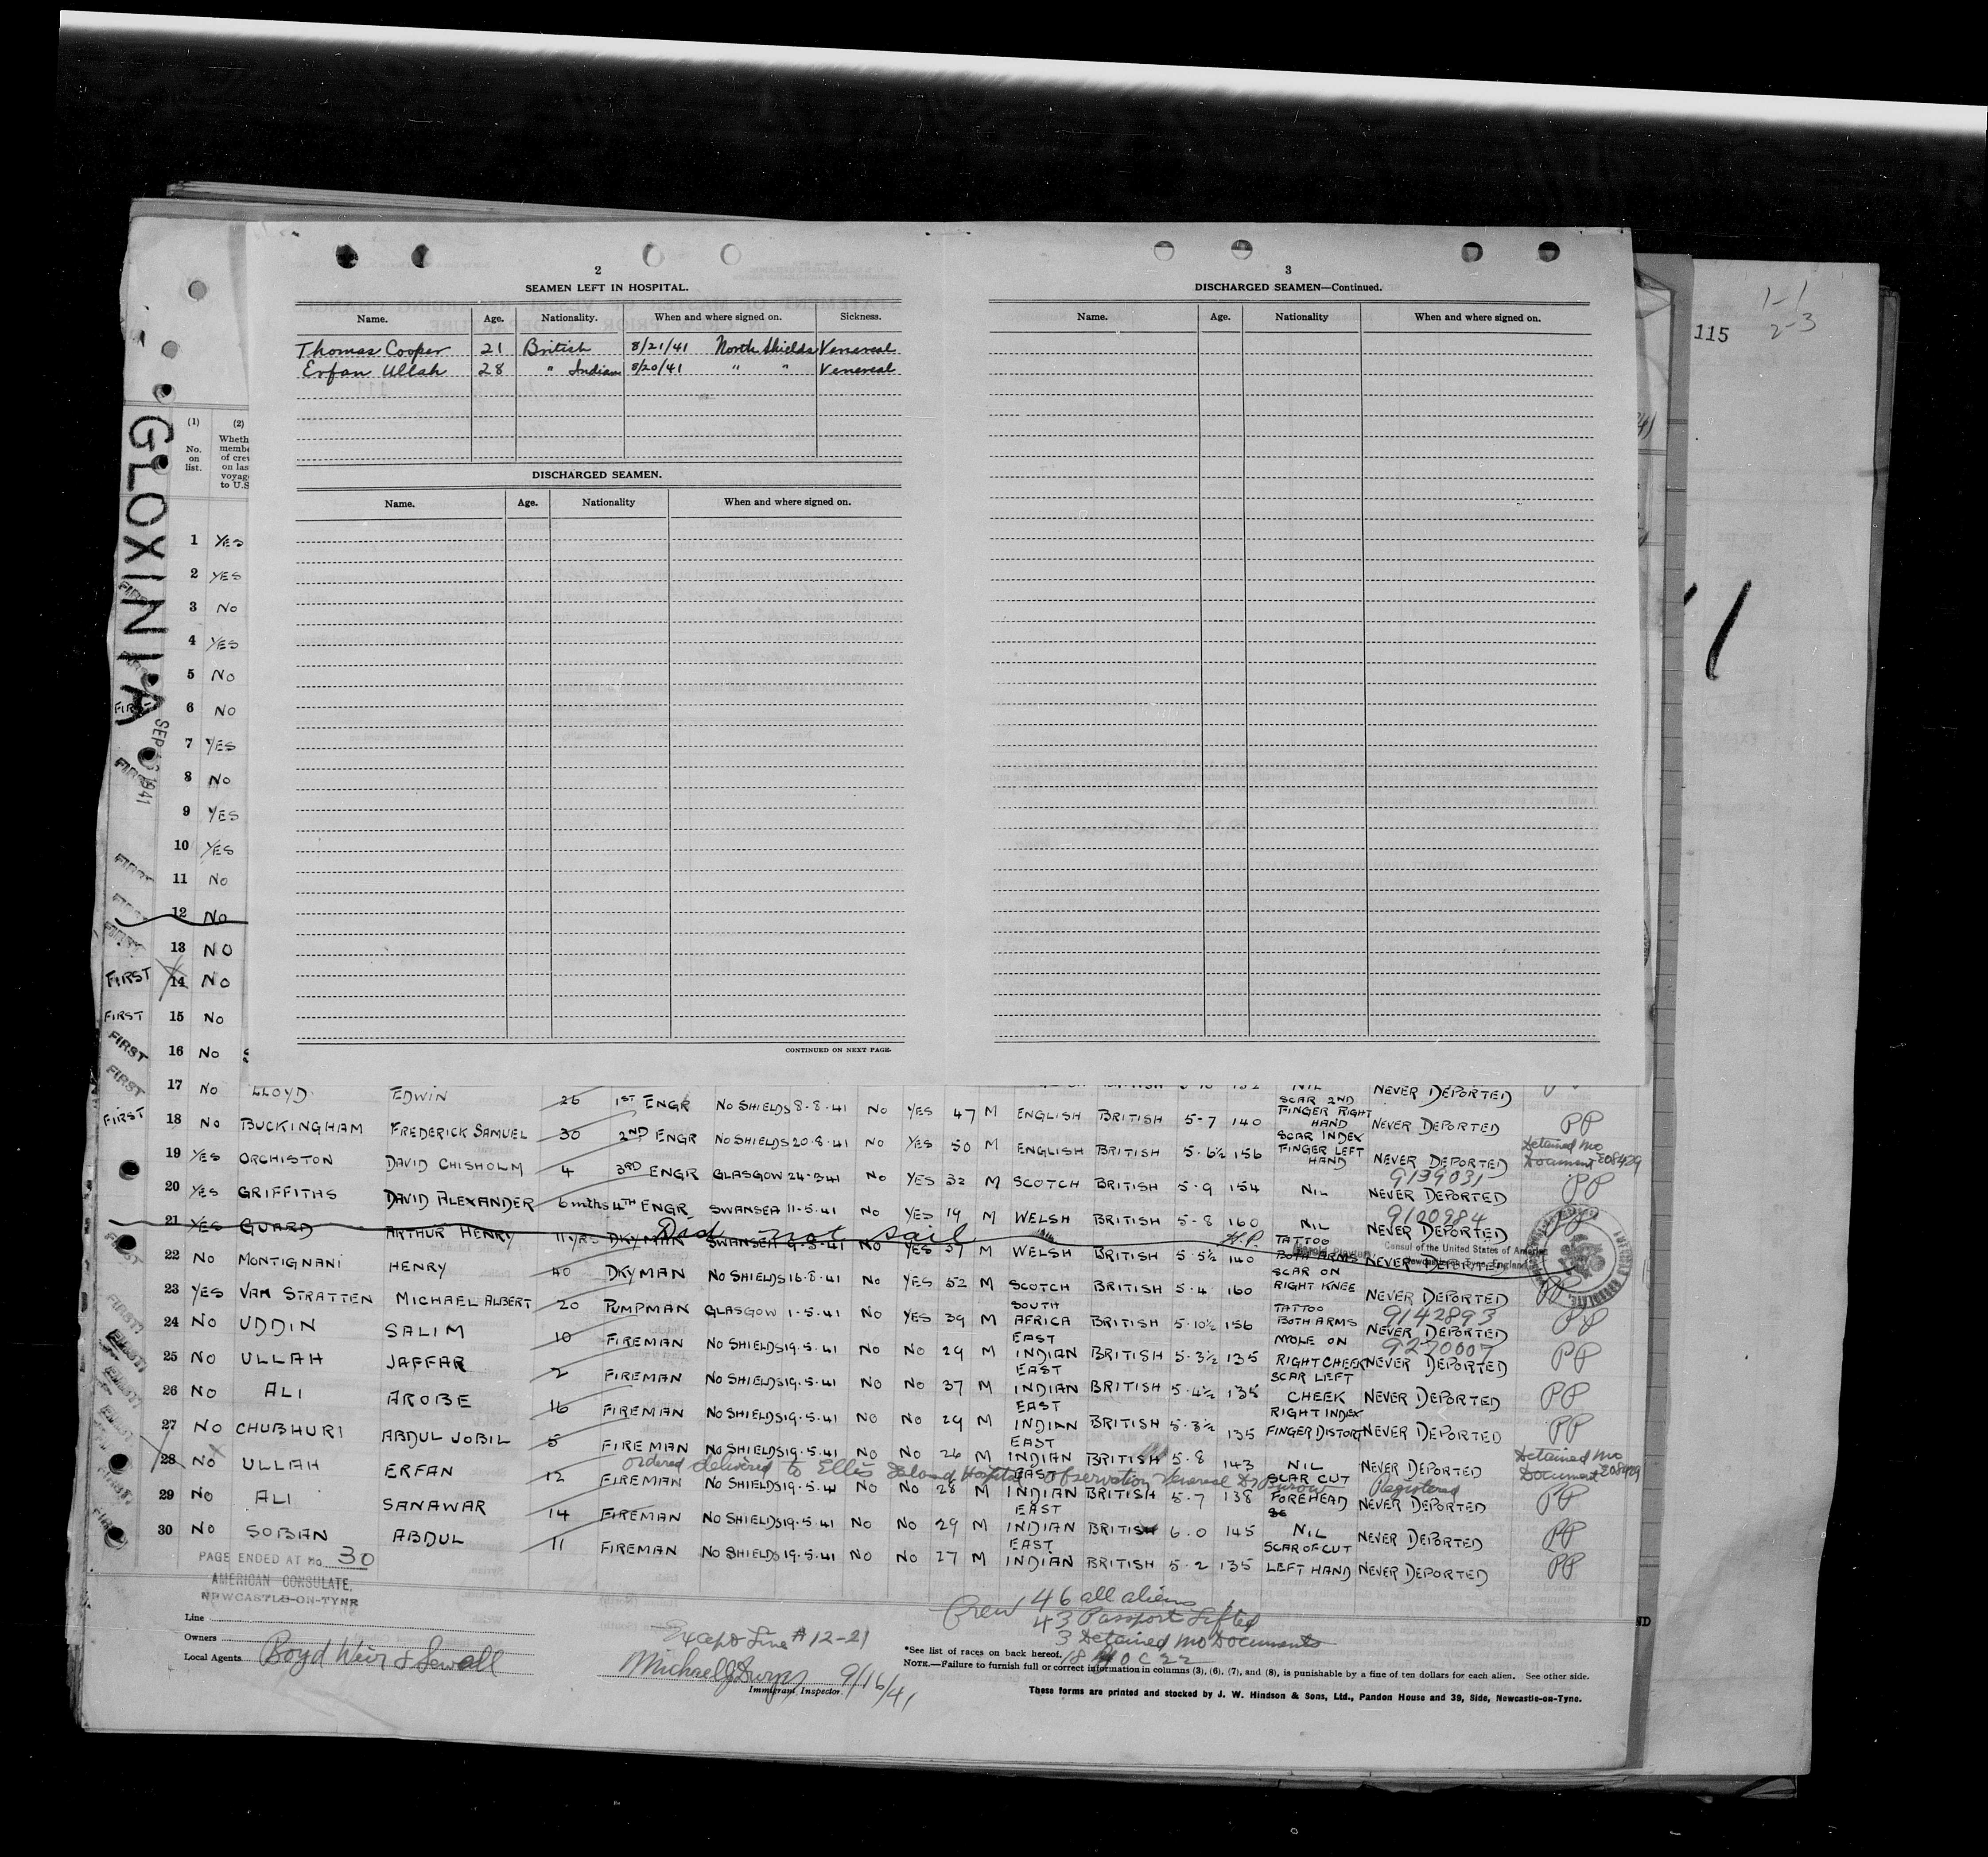 2
SEAMEN LEFT IN HOSPITAL.
Name. Age. Nationality. When and where signed on. Sickness.
Thomas Cooper 21 British 8/21/41 North Shields Venereal
Erfan Ullah 28 " Indian 8/20/41 " " Venereal
DISCHARGED SEAMEN.
Name. Age. Nationality When and where signed on.
CONTINUED ON NEXT PAGE.
3
DISCHARGED SEAMEN—Continued.
Name. Age. Nationality When and where signed on.
115
1-1
2-3
GLOXINIA
SEP 1941
(1) (2)
No. on list.
Wheth
membe
of crew
on las
voyage
to U.S
1 YES
2 YES
3 NO
4 YES
5 NO
6 NO
7 YES
8 NO
9 YES
10 YES
11 NO
12 NO
13 NO
FIRST 14 NO
FIRST 15 NO
FIRST 16 NO
FIRST 17 NO LLOYD. EDWIN 26 1ST ENGR NO SHIELDS 8-8-41 NO YES 47 M ENGLISH BRITISH 5-7 140 SCAR 2ND FINGER RIGHT HAND NEVER DEPORTED PP
FIRST 18 NO BUCKINGHAM FREDERICK SAMUEL 30 2ND ENGR NO SHIELDS 20-8-41 NO YES 50 M ENGLISH BRITISH 5-6½ 156 SCAR INDEX FINGER LEFT HAND NEVER DEPORTED Detained No Document
19 YES ORCHISTON DAVID CHISHOLM 4 3RD ENGR GLASGOW 24-3-41 NO YES 32 M SCOTCH BRITISH 5-9 154 NIL 9139031 NEVER DEPORTED PP
20 YES GRIFFITHS DAVID ALEXANDER 6 mths 4TH ENGR SWANSEA 11-5-41 NO YES 19 M WELSH BRITISH 5-8 160 NIL 9100984 NEVER DEPORTED PP
21 YES GUARD ARTHUR HENRY 11 yrs DKYMAN SWANSEA 9-5-41 NO YES 37 M WELSH BRITISH 5-5½ 140 TATTOO BOTH ARMS NEVER DEPORTED
Did not sail H.P.
Consul of the United States of America
Newcastle-on-Tyne, England
22 NO MONTIGNANI HENRY 40 DKYMAN NO SHIELDS 16-8-41 NO YES 52 M SCOTCH BRITISH 5-4 160 SCAR ON RIGHT KNEE NEVER DEPORTED PP
23 YES VAN STRATTEN MICHAEL ALBERT 20 PUMPMAN GLASGOW 1-5-41 NO YES 39 M SOUTH AFRICA BRITISH 5-10½ 156 TATTOO BOTH ARMS 9142893 NEVER DEPORTED PP
24 NO UDDIN SALIM 10 FIREMAN NO SHIELDS 19-5-41 NO NO 29 M EAST INDIAN BRITISH 5-3½ 135 MOLE ON RIGHT CHEEK 9270007 NEVER DEPORTED PP
25 NO ULLAH JAFFAR 2 FIREMAN NO SHIELDS 19-5-41 NO NO 37 M EAST INDIAN BRITISH 5-4½ 135 SCAR LEFT CHEEK NEVER DEPORTED PP
26 NO ALI AROBE 16 FIREMAN NO SHIELDS 19-5-41 NO NO 29 M EAST INDIAN BRITISH 5-3½ 135 RIGHT INDEX FINGER DISTORT NEVER DEPORTED PP
27 NO CHUBHURI ABDUL JOBIL 5 FIREMAN NO SHIELDS 19-5-41 NO NO 26 M EAST INDIAN BRITISH 5-8 143 NIL NEVER DEPORTED Detained No Document
ordered delivered to Ellis Island Hospital observation Venereal Registered
28 NO ULLAH ERFAN 12 FIREMAN NO SHIELDS 19-5-41 NO NO 28 M EAST INDIAN BRITISH 5-7 138 SCAR CUT FOREHEAD NEVER DEPORTED PP
29 NO ALI SANAWAR 14 FIREMAN NO SHIELDS 19-5-41 NO NO 29 M EAST INDIAN BRITISH 6-0 145 NIL NEVER DEPORTED PP
30 NO SOBAN ABDUL 11 FIREMAN NO SHIELDS 19-5-41 NO NO 27 M EAST INDIAN BRITISH 5-2 135 SCAR OF CUT LEFT HAND NEVER DEPORTED PP
PAGE ENDED AT No 30
AMERICAN CONSULATE,
NEWCASTLE-ON-TYNE
Line
Owners
Local Agents Boyd Weir & Sewell
Except Line # 12-21
9/16/41
Immigrant Inspector.
Crew 46 all aliens
43 Passport Lifted
3 Detained No Documents
*See list of races on back hereof.
NOTE.—Failure to furnish full or correct information in columns (3), (6), (7), and (8), is punishable by a fine of ten dollars for each alien. See other side.
These forms are printed and stocked by J. W. Hindson & Sons, Ltd., Pandon House and 39, Side, Newcastle-on-Tyne.